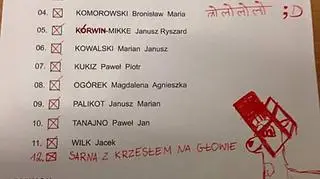 04. KOMOROWSKI Bronisław Maria
05. KORWIN-MIKKE Janusz Ryszard
06. KOWALSKI Marian Janusz
07. KUKIZ Paweł Piotr
08. OGÓREK Magdalena Agnieszka
09. PALIKOT Janusz Marian
10. TANAJNO Paweł Jan
11. WILK Jacek
12. SARNA Z KRZESŁEM NA GŁOWIE
;D